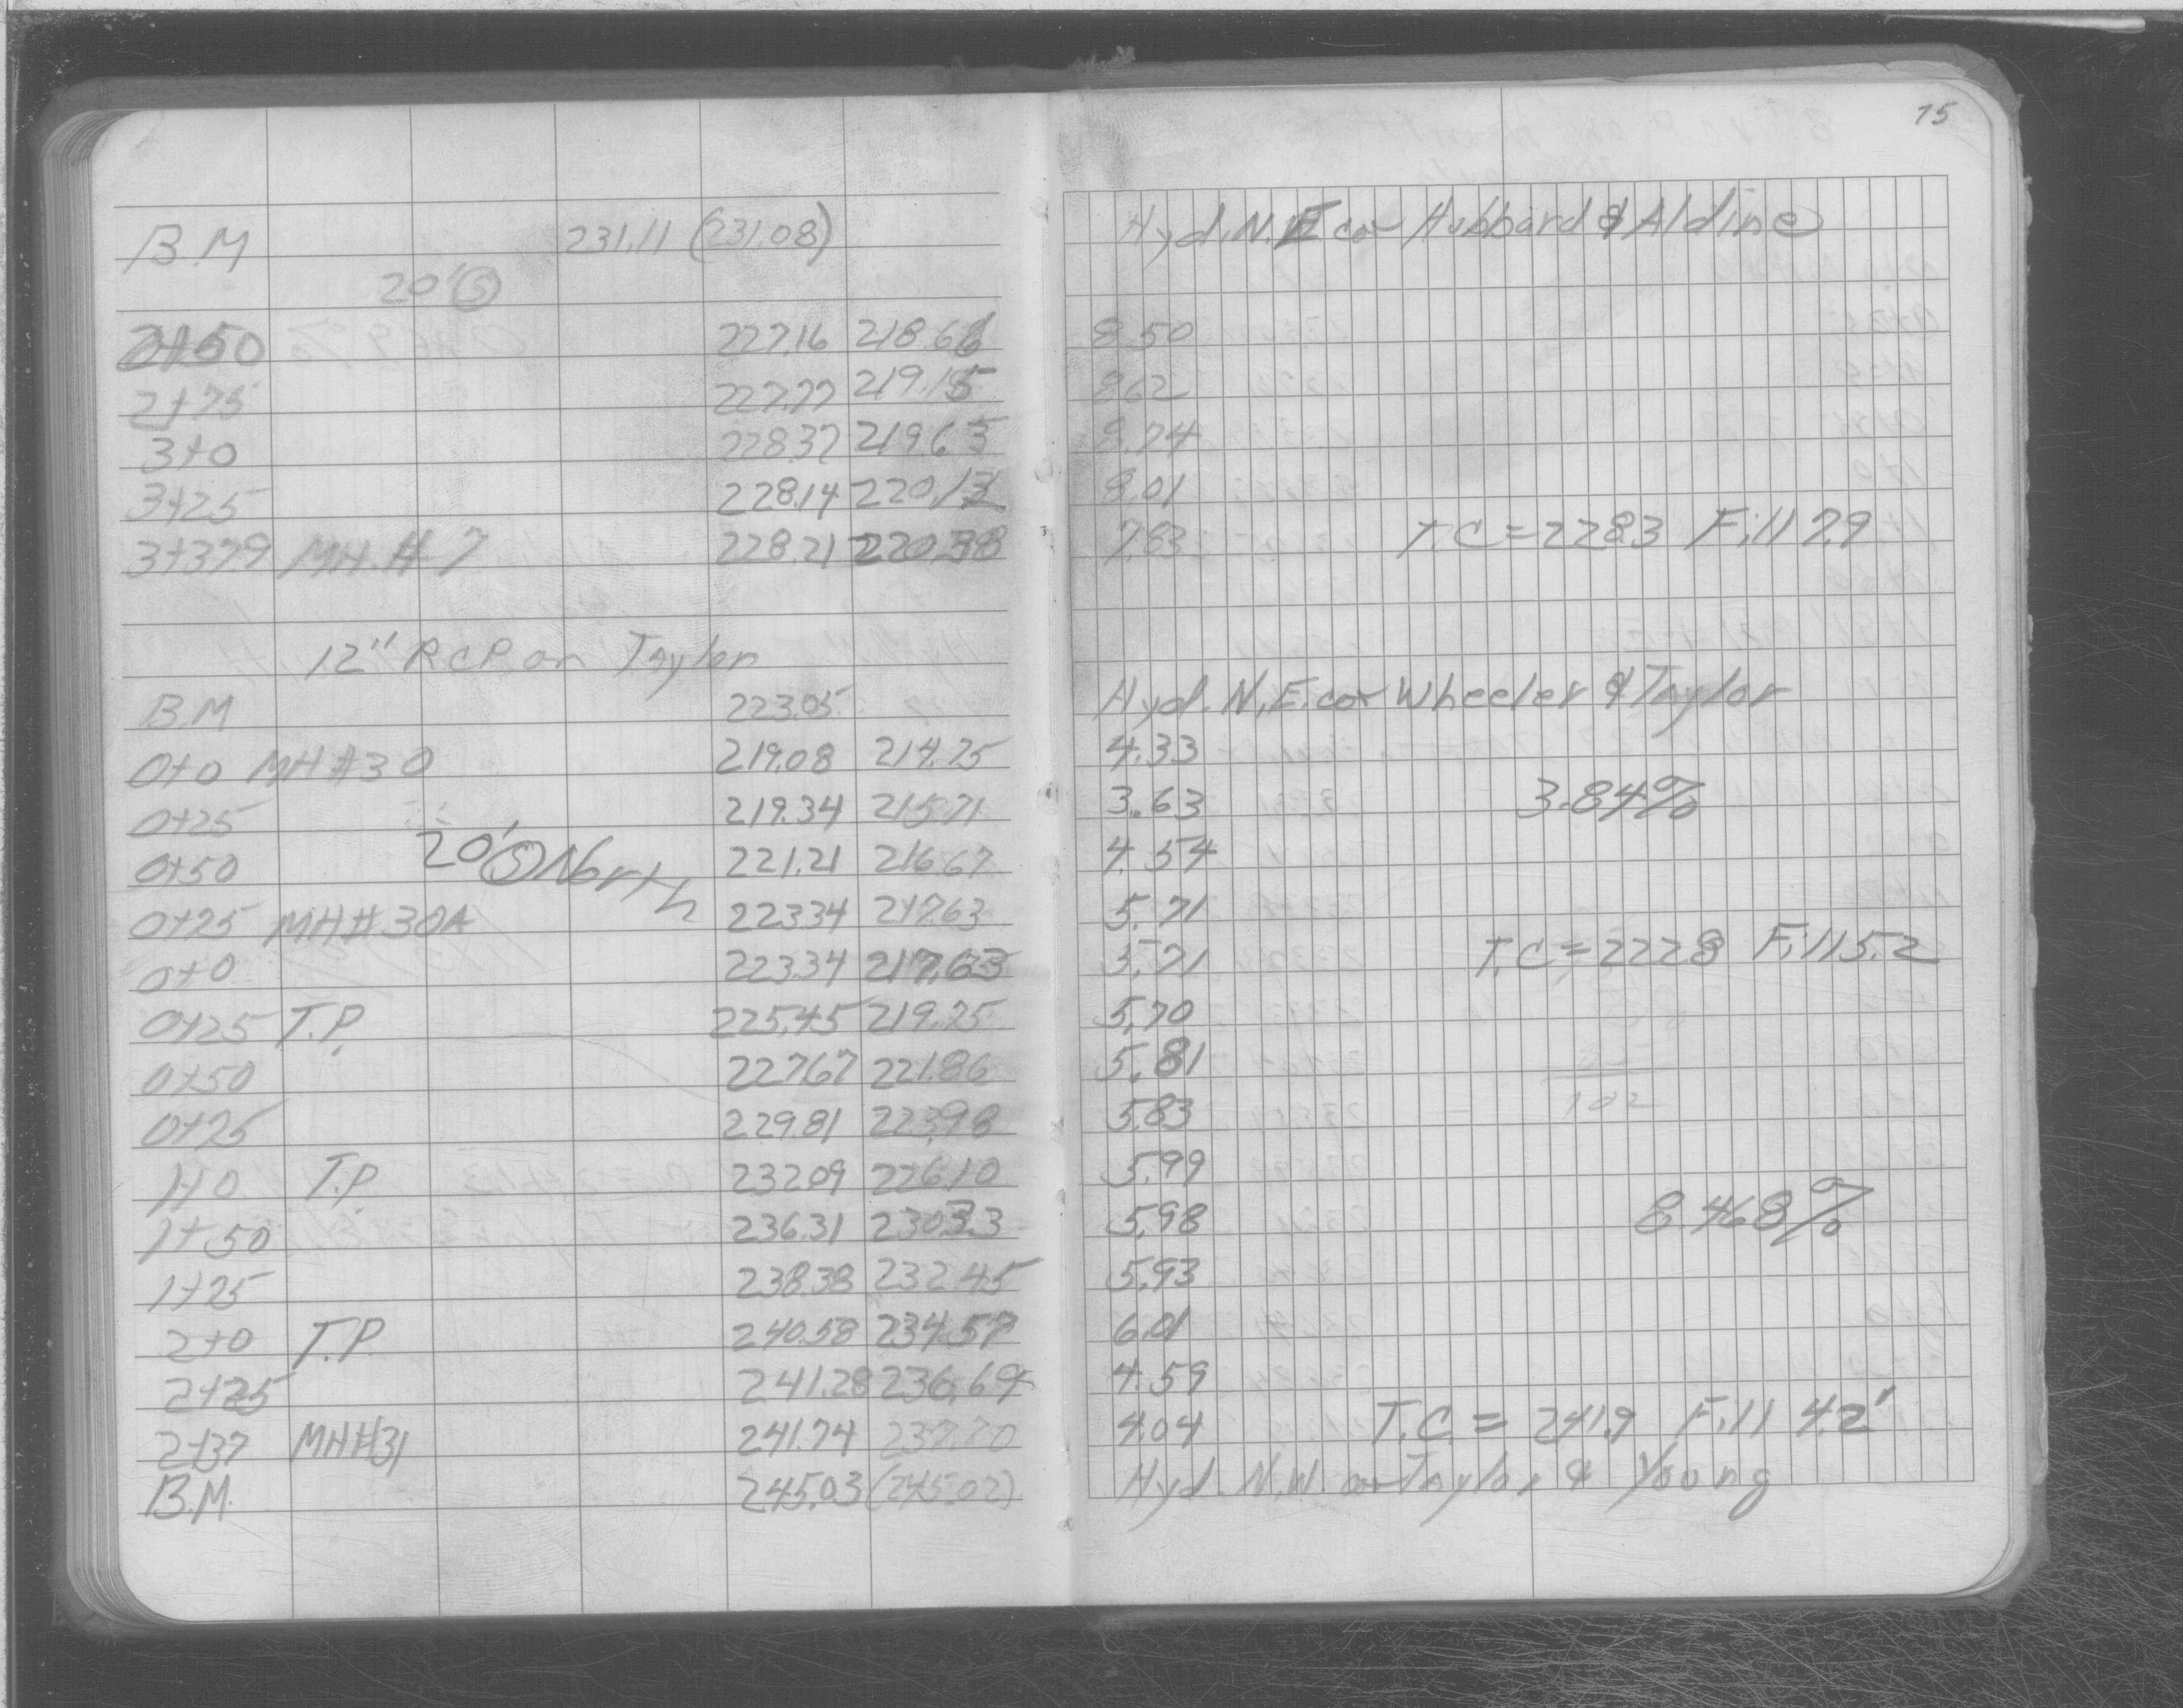 75
B.M 231.11 (231.08) Hyd. N.E cor Hubbard & Aldine
20' Ⓢ
2+50 227.16 218.66 8.50
2+75 227.77 219.15 8.62
3+0 228.37 219.63 8.74
3+25 228.14 220.13 8.01
3+37.9 MH.#7 228.21 220.38 7.83 T.C=228.3 Fill 7.9
12" RCP on Taylor
B.M 223.05 Hyd. N.E. cor Wheeler & Taylor
0+0 MH#30 219.08 214.75 4.33
0+25 219.34 215.71 3.63 3.84%
0+50 20' Ⓢ North 221.21 216.67 4.54
0+75 MH#30A 223.34 217.63 5.71
0+0 223.34 217.63 5.71 T.C=222.8 Fill 5.2
0+25 T.P. 225.45 219.75 5.70
0+50 227.67 221.86 5.81
0+75 229.81 223.98 5.83
1+0 T.P. 232.09 226.10 5.99
1+50 236.31 230.33 5.98 8.468%
1+75 238.38 232.45 5.93
2+0 T.P. 240.58 234.57 6.01
2+25 241.28 236.69 4.59
2+37 MH#31 241.74 237.70 4.04 T.C.= 241.9 Fill 4.2'
B.M. 245.03 (245.02) Hyd. N.W. cor Taylor & Young